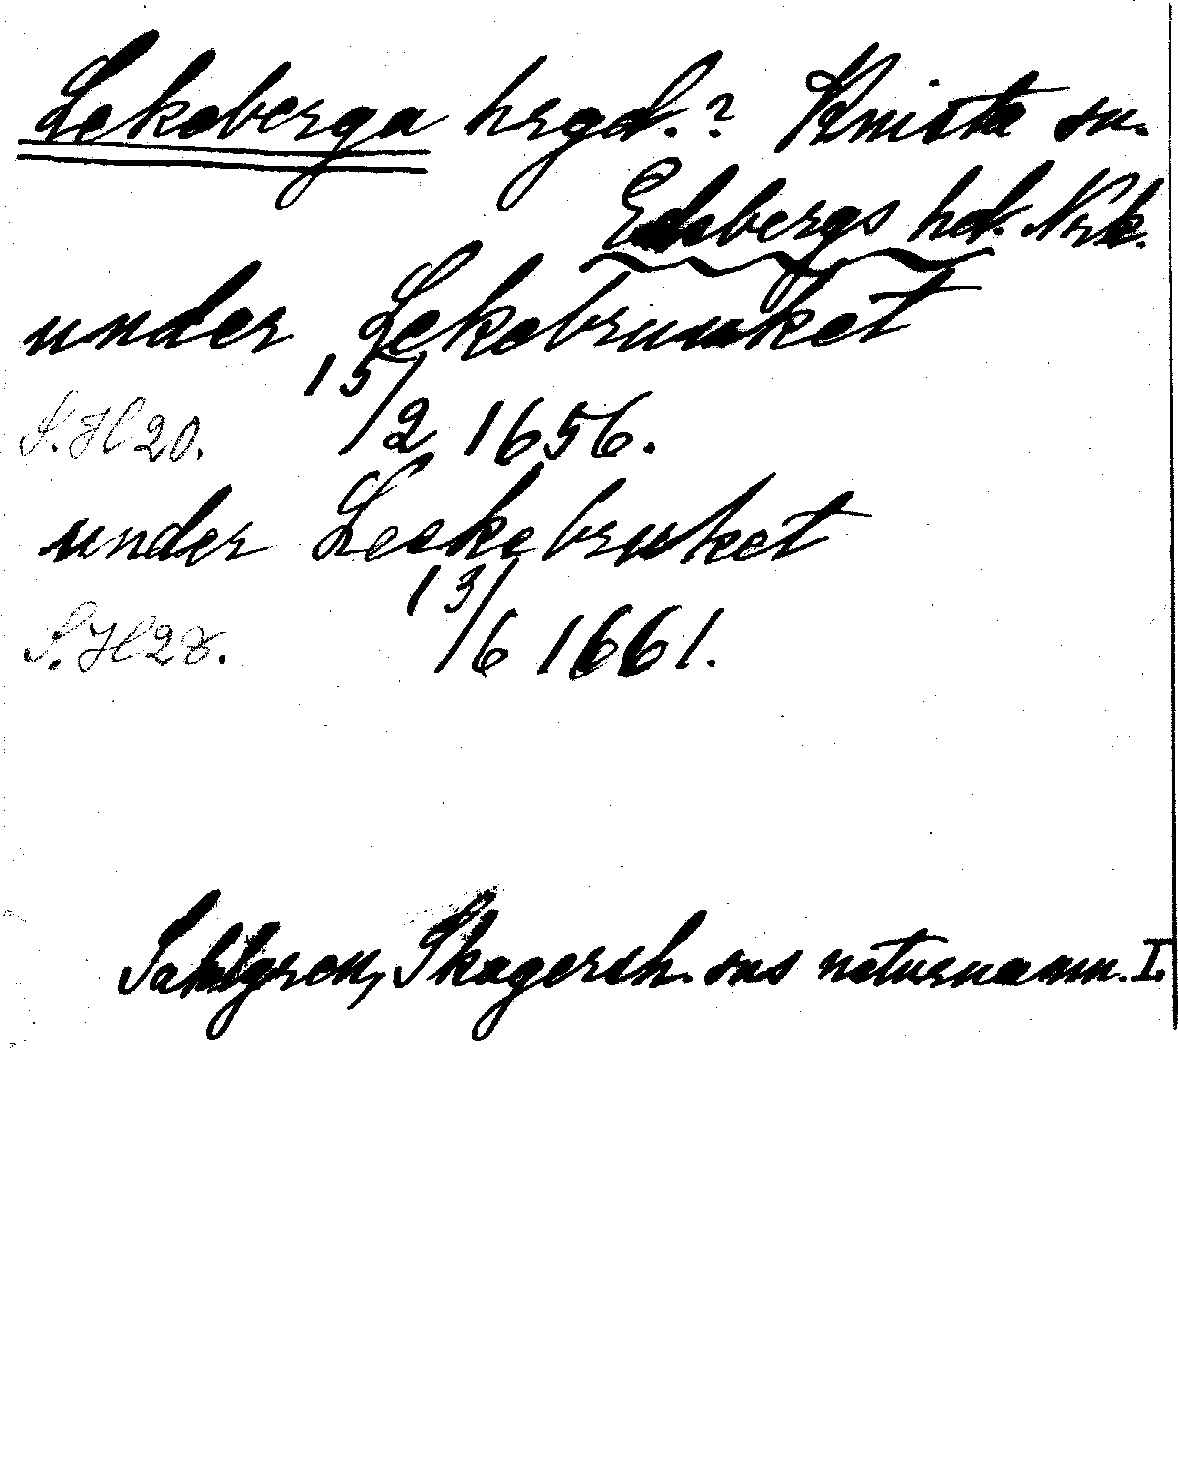 Lekeberga hrgd.? Knista sn.
Edsbergs hd. Nrk.
under Lekebruuket
15/2 1656.
S.H 20.
under Leekebruket
13/6 1661.
S.H 28.
Sahlgren, Skagersh. sns naturnamn. I.